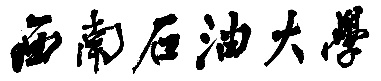 西南石油大學